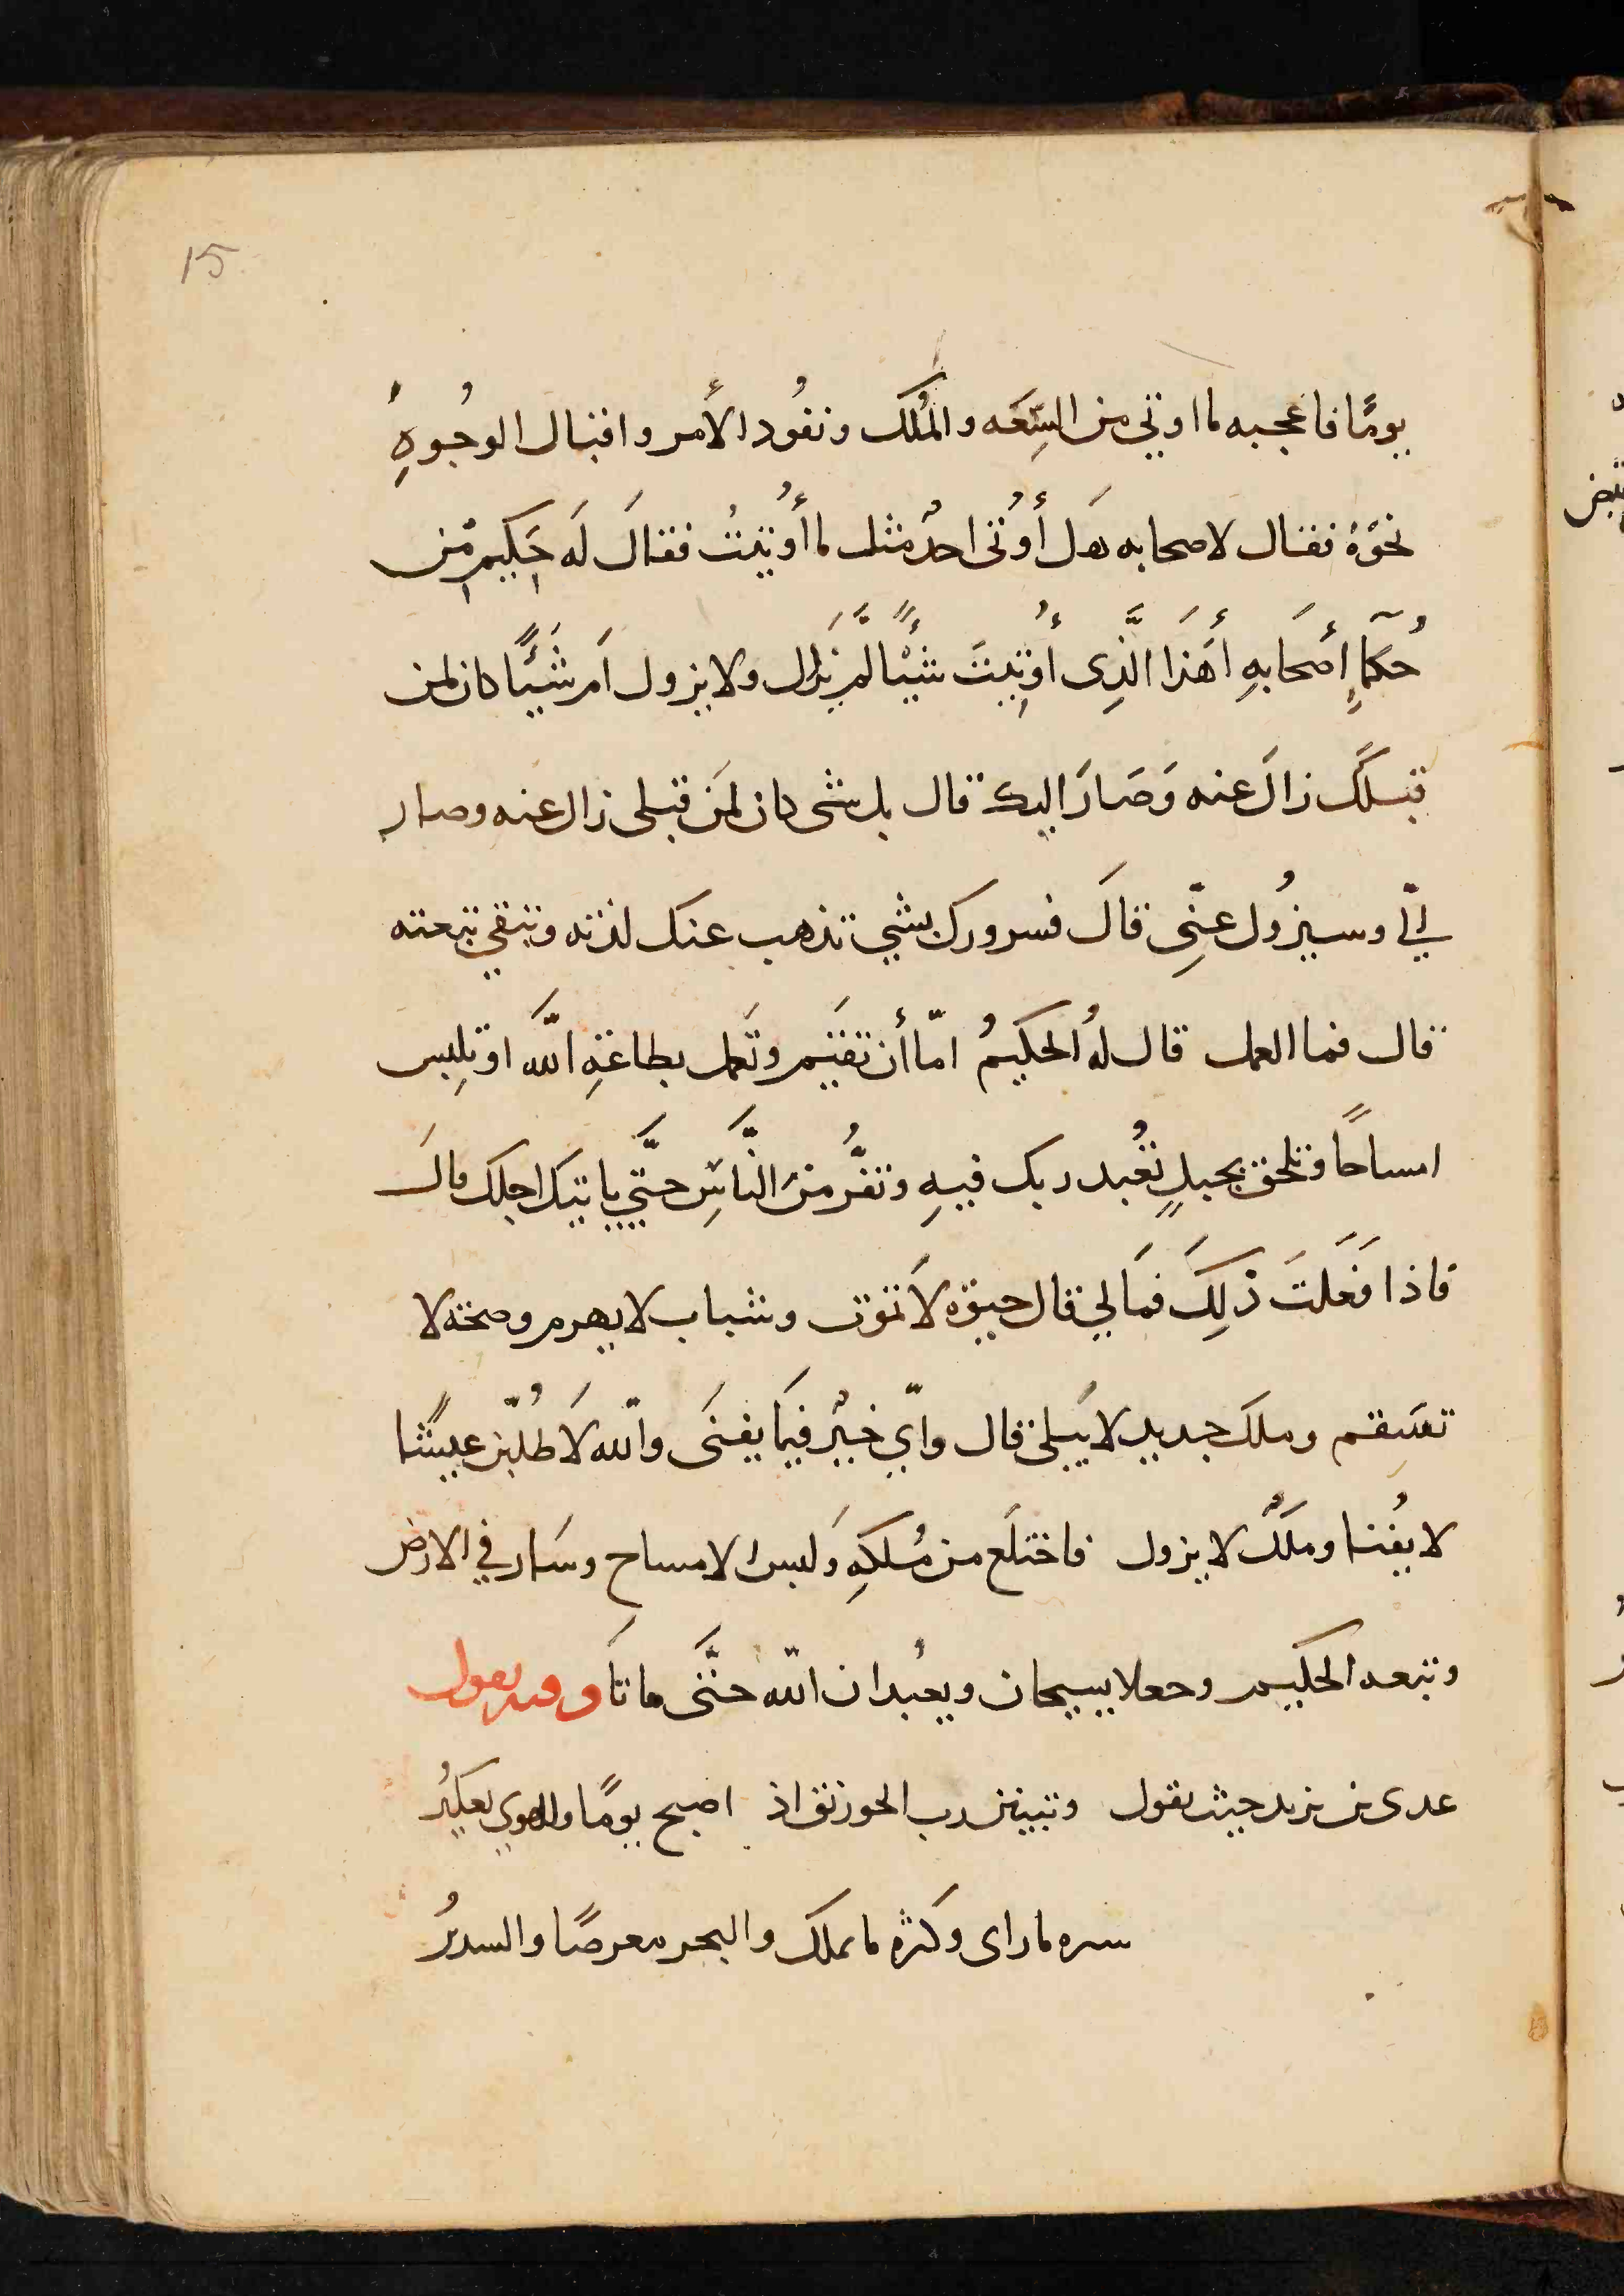 15
يومًا فاعجبه لما اوتي من السِّعَه والمُلك ونفُود الأمر واقبال الوجُوهِ
نحوَهُ فقال لاصحابه هَل أُوتى احدٌ مثل ما أُوتيتُ فقالَ لَه حَكِيم مِّن
حُكمآءِ أصحَابهِ أهَذَا الَّذِى أُوتِيتَ شيْئًا لَّم يَزل ولا يزول اَم شَيئًا كان لمن
قبلكَ زالَ عنه وَصَارَ اليك قال بل شى كان لمَن قبلى زال عنه وصار
ليّ وسيزُول عنِّى قالَ فسرورك بشي تذهب عنك لذته وتبقي تبعته
قال فما العمل قال لهُ الحكيمُ امّا أن تقيَم وتَعمل بطاعَةِ اللَّه او تلبِس
امساحًا وتلحق بجبلٍ تعْبُد ربك فيهِ وتفُرَّ من النَّاسِ حتَّي ياتيك اجلك قالَ
فاذا فَعَلتَ ذَلِكَ فمَا لي قال حيوة لاَ تموت وشباب لا يهرم وصحة لا
تسَقم وملك جديد لا يَبلى قال وايّ خيْر فيمَا يفنَى واللّه لاَطلُبّن عيشًا
لا يفُنا وملكٌ لا يزول فاختلَع من مُلكهِ وَلبس الامساح وسَار في الارض
وتبعه الحكيم وجعلا يسيحان ويعبُدان اللّه حتَّى ماتَا وفيه يقول
عدى بن زيد حيث يقول وتبين رب الخورنق اذ اصبح يومًا وللهوي تفكيرُ
سره ما راى وكثرة ما يملك والبحر معرضًا والسديرُ